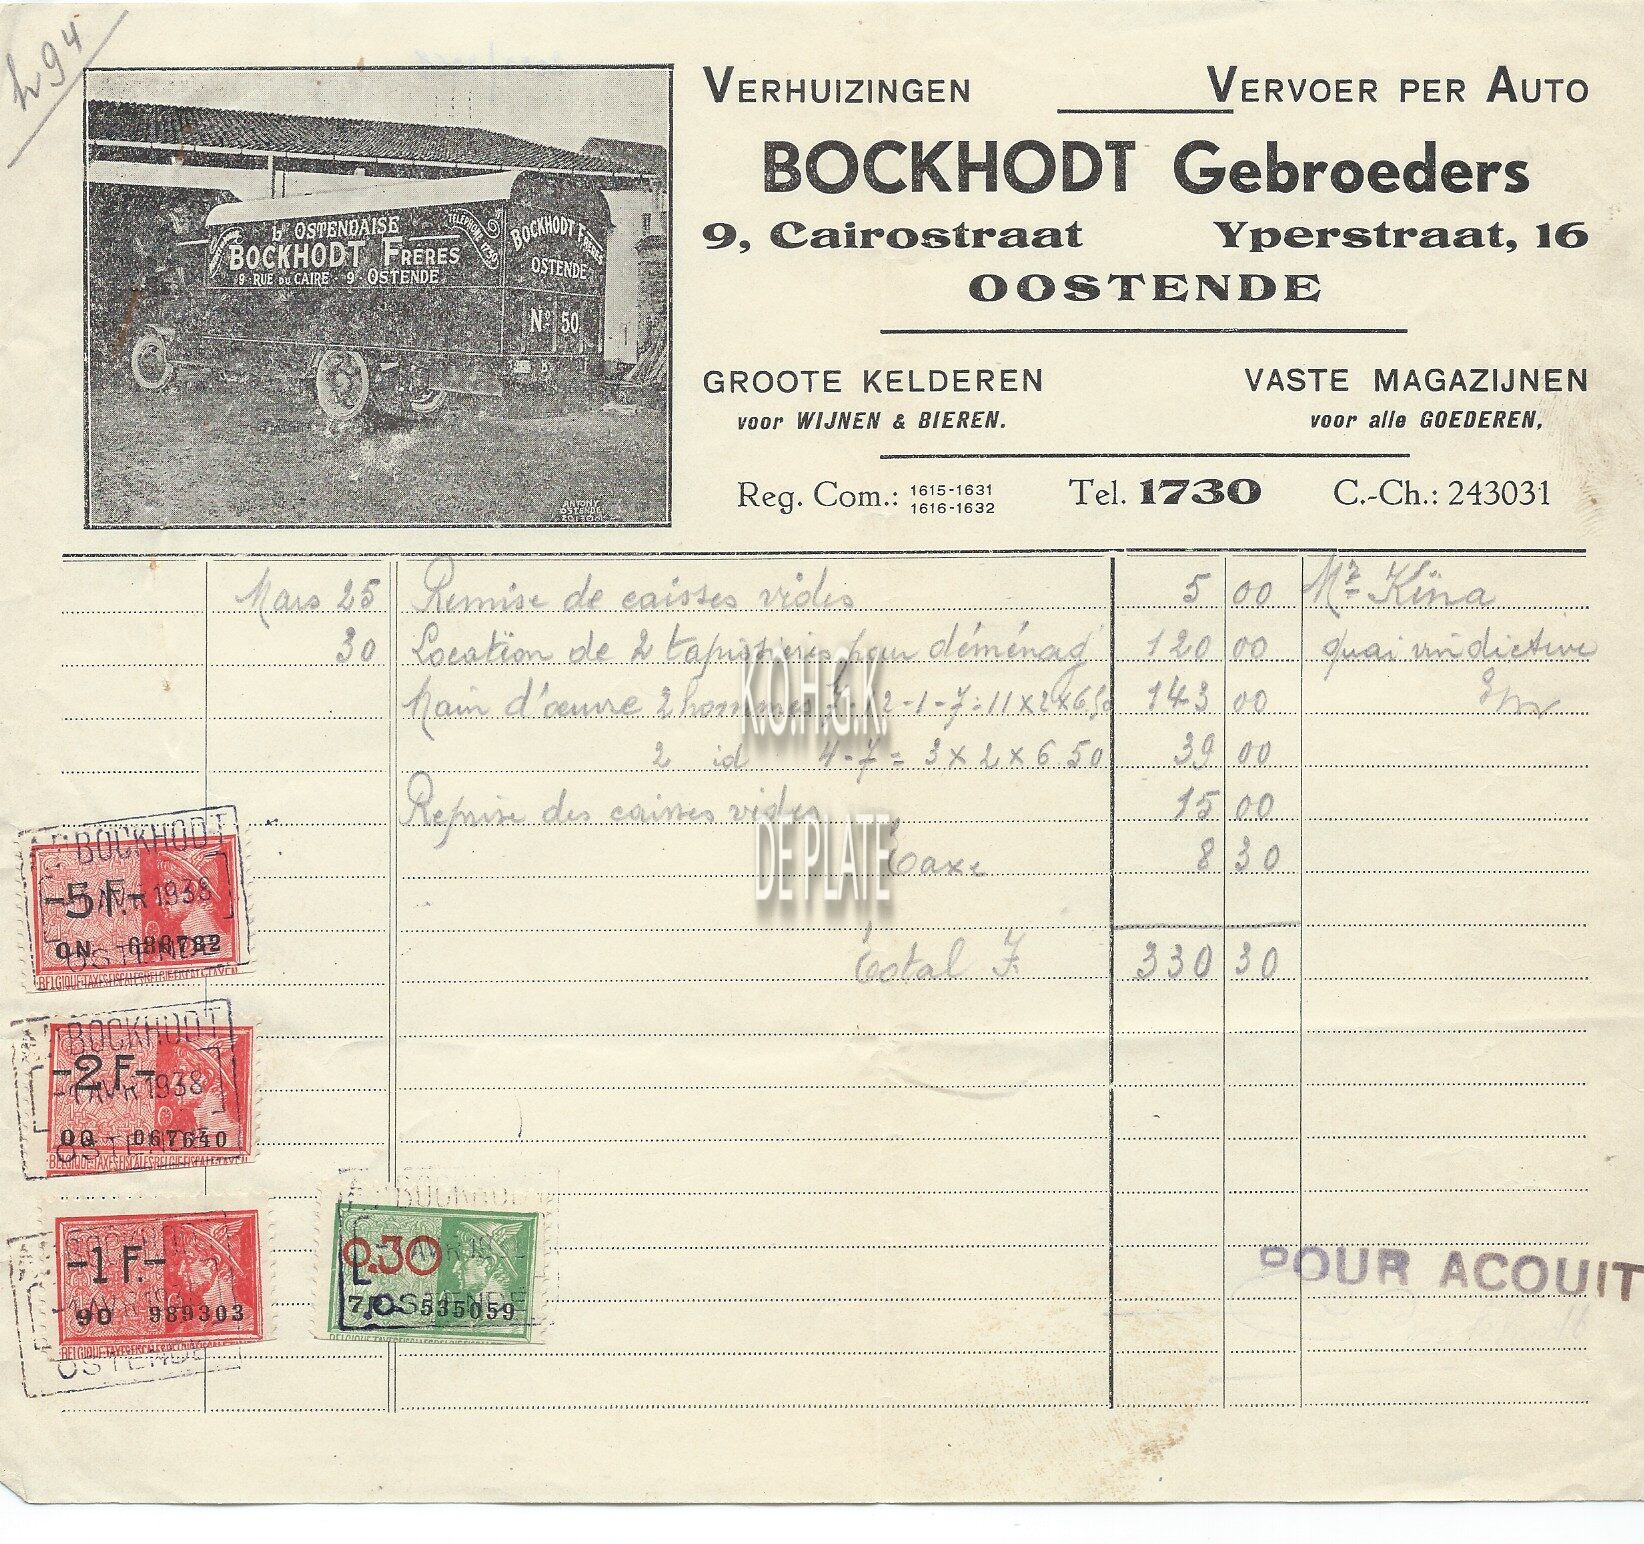 VERHUIZINGEN VERVOER PER AUTO
BOCKHODT Gebroeders
9, Cairostraat Yperstraat, 16
OOSTENDE
GROOTE KELDEREN VASTE MAGAZIJNEN
voor WIJNEN & BIEREN. voor alle GOEDEREN,
Reg. Com.: 1615-1631 Tel. 1730 C.-Ch.: 243031
1616-1632
L'OSTENDAISE
BOCKHODT FRERES
9 RUE DU CAIRE 9 OSTENDE
TELEPHONE 1730
BOCKHODT FRERES
OSTENDE
No 50
Mars 25 Remise de caisses vides 5 00 Mr Kina
30 Location de 2 tapissières pour déménag 120 00 quai vindictive
Main d'œuvre 2 hommes 7-12-1-7=11x2x6,50 143 00
2 id 4-7 = 3 x 2 x 6 50 39 00
Reprise des caisses vides 15 00
Taxe 8 30
Total F 330 30
K.O.H.G.K.
DE PLATE
BOCKHODT
-5 F.-
AVR 1938
ON
OSTENDE
BELGIQUE-TAXES FISCALES
BOCKHODT
-2 F.-
-1 AVR 1938
OQ 067640
OSTENDE
BELGIQUE-TAXES FISCALES
-1 F.-
90 989303
OSTENDE
BELGIQUE-TAXES FISCALES
BOCKHODT
0.30
535059
OSTENDE
POUR ACQUIT